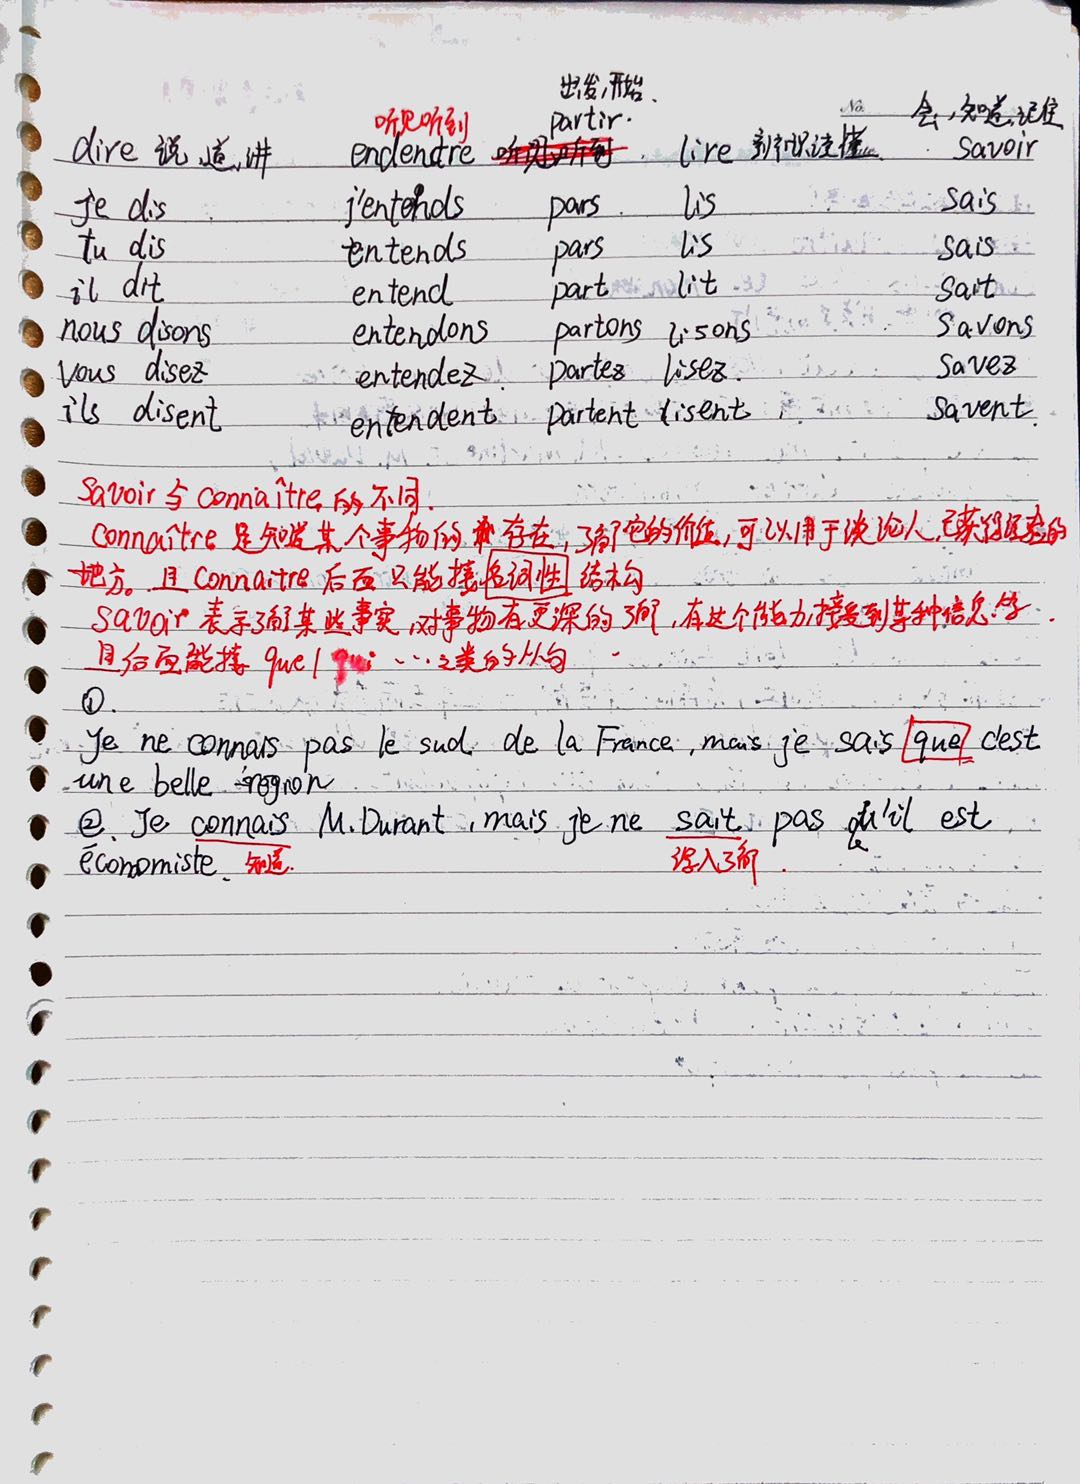 出发,开始.
听见听到 partir. No. 会,知道,记住
dire 说,道,讲 endendre lire savoir
je dis j'entends pars lis sais
tu dis entends pars lis sais
il dit entend part lit sait
nous disons entendons partons lisons savons
vous disez entendez partez lisez savez
ils disent entendent partent lisent savent
savoir与connaître的不同.
connaître是知道某个事物的存在,了解它的价值,可以用于谈论人,已获得经验的
地方。且connaitre后面只能接名词性结构
savoir表示了解某些事实,对事物有更深的了解,有这个能力,接受到某种信息.学
且后面能接 que/qui …之类的从句
①.
Je ne connais pas le sud de la France, mais je sais que c'est
une belle région
②. Je connais M. Durant, mais je ne sait pas qu'il est
économiste. 知道.
深入了解.